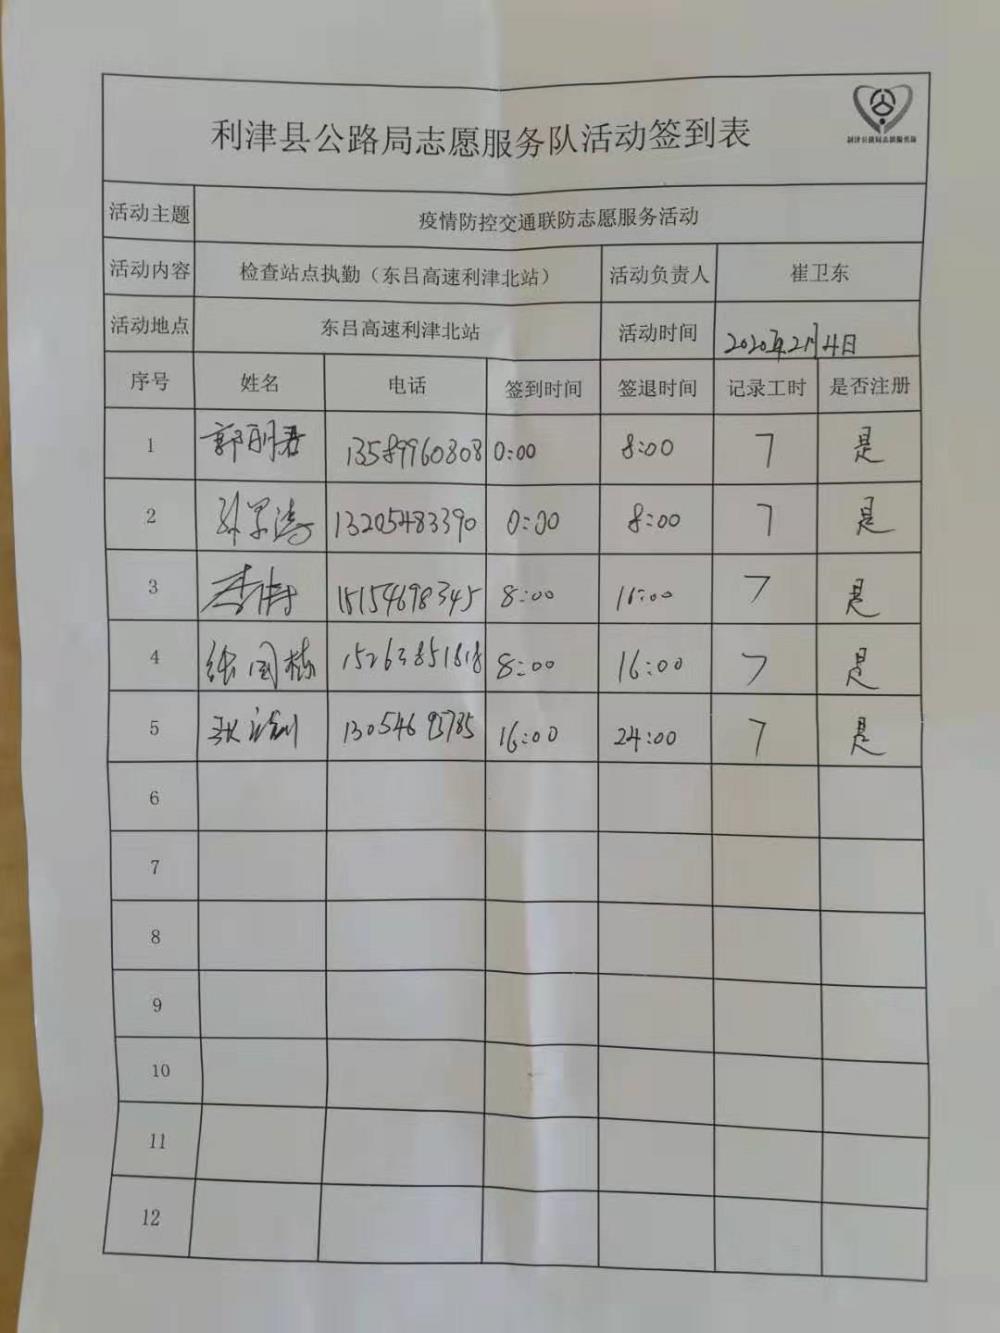 利津县公路局志愿服务队活动签到表
利津县公路局志愿服务队
活动主题 疫情防控交通联防志愿服务活动
活动内容 检查站点执勤（东吕高速利津北站） 活动负责人 崔卫东
活动地点 东吕高速利津北站 活动时间 2020年2月4日
序号 姓名 电话 签到时间 签退时间 记录工时 是否注册
1 郭明君 13589960808 0:00 8:00 7 是
2 13205483390 0:00 8:00 7 是
3 李伟 15154698345 8:00 16:00 7 是
4 张国栋 15263851818 8:00 16:00 7 是
5 16:00 24:00 7 是
6
7
8
9
10
11
12